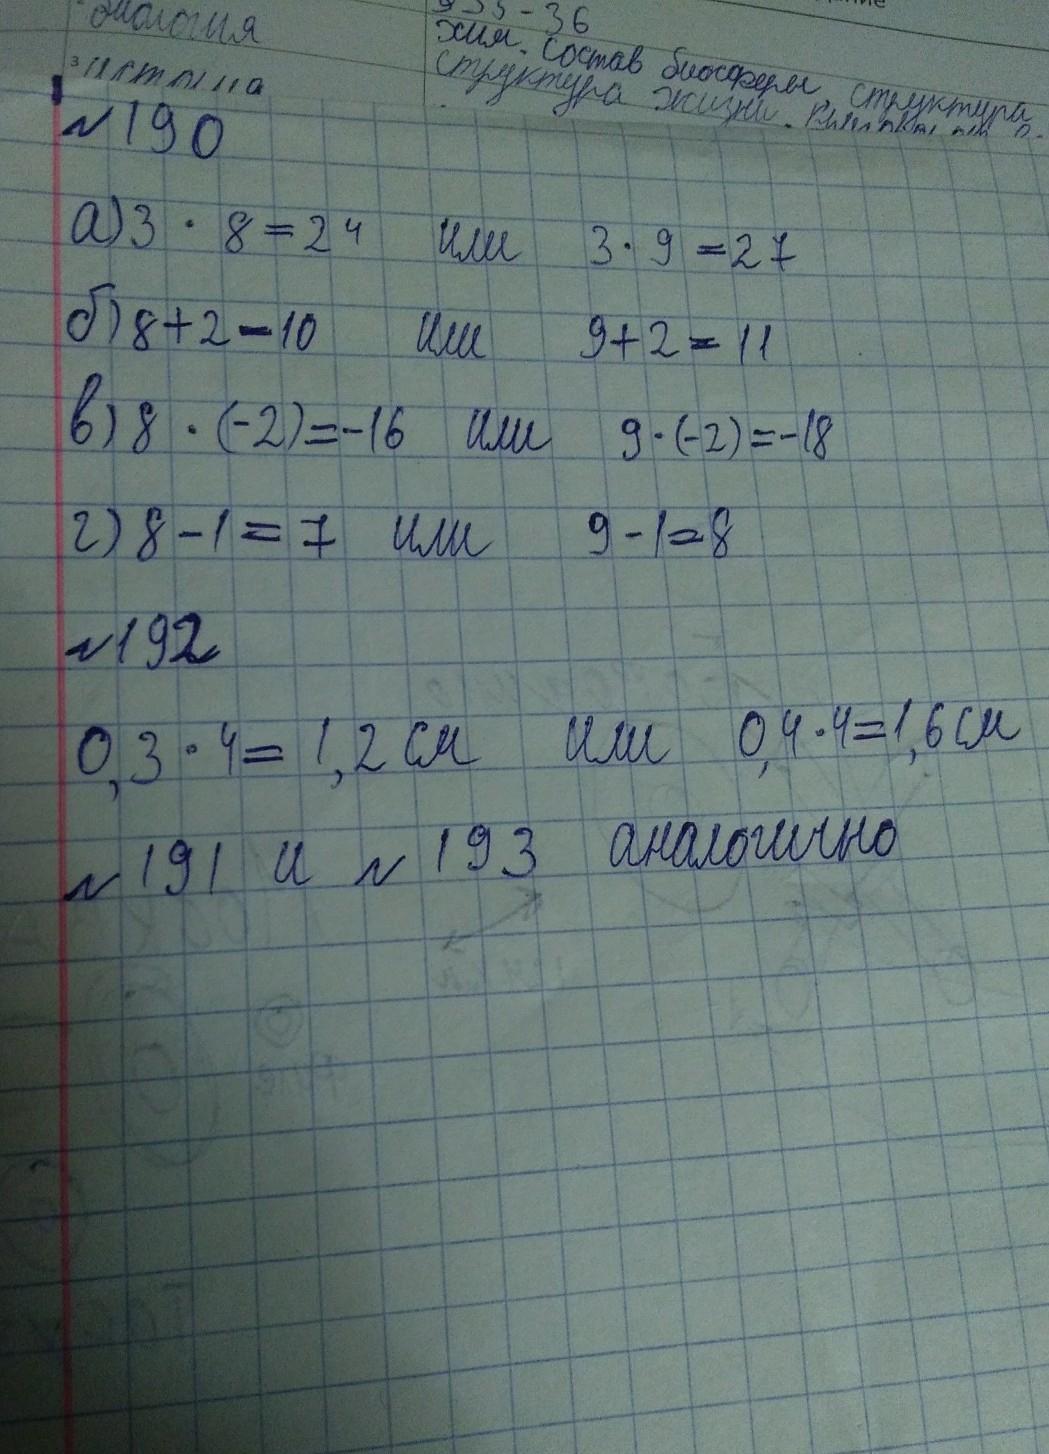 биология
§35-36
хим. состав биосферы структура
структура жизни.
№190
а) 3 · 8 = 24 или 3 · 9 = 27
б) 8+2=10 или 9+2=11
в) 8 · (-2)=-16 или 9·(-2)=-18
г) 8-1=7 или 9-1=8
№192
0,3·4=1,2 см или 0,4·4=1,6 см
№191 и №193 аналогично